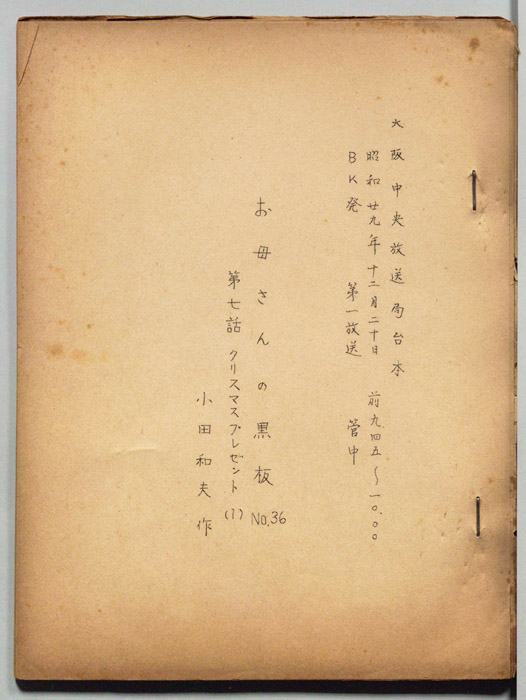 大阪中央放送局台本
昭和廿九年十二月二十日 前九四五～一〇.〇〇
BK発 第一放送 管中
お母さんの黒板 No.36
第七話 クリスマスプレゼント (1)
小田和夫作